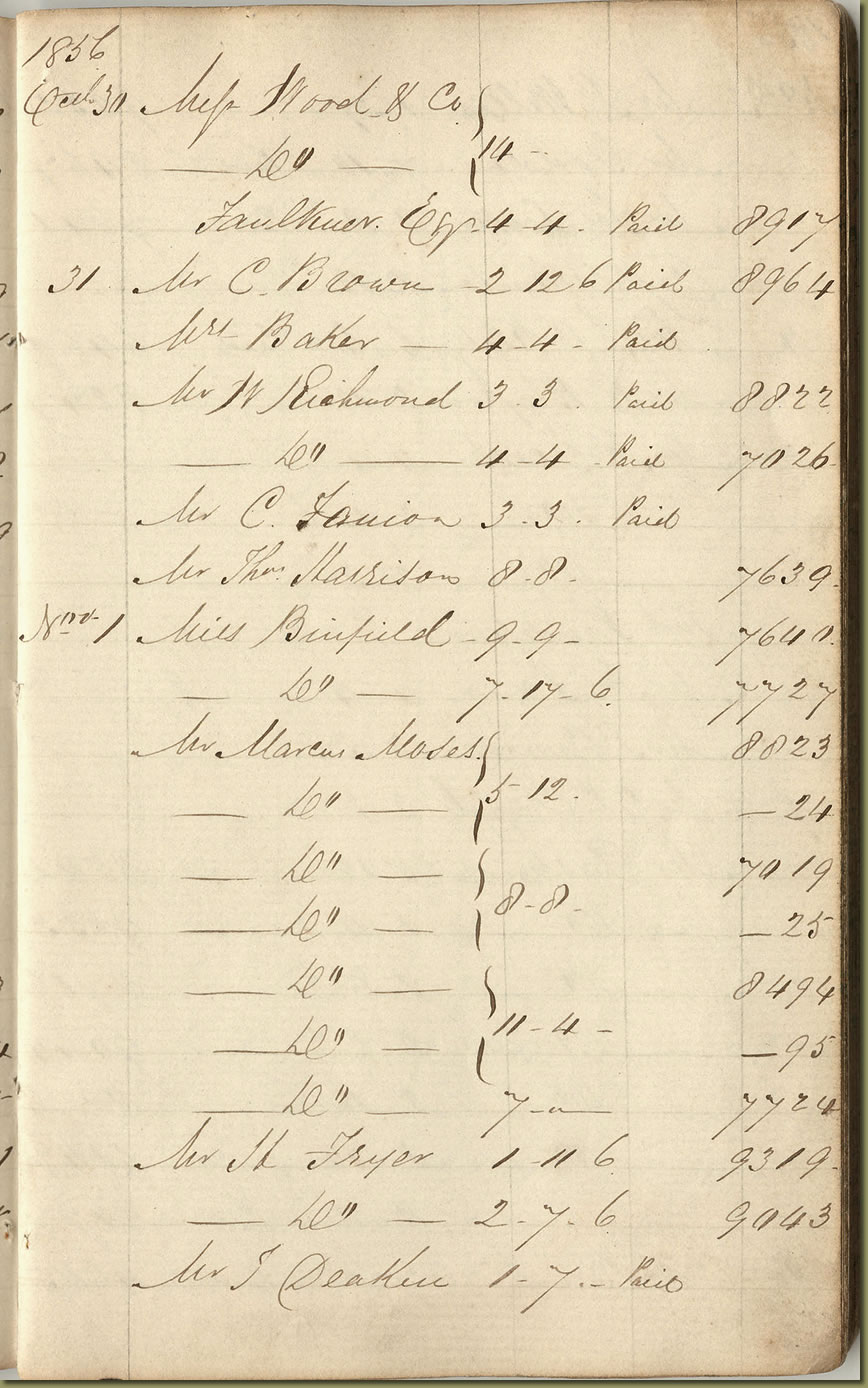 1856
Octr 30 Messrs Wood & Co
— Do — } 14 -
Faulkner. Esqr - 4 - 4 - Paid 8917
31 Mr C. Brown - 2 12 6 Paid 8964
Mrs Baker — 4 - 4 - Paid
Mr W Richmond 3 . 3 . Paid 8822
— Do — 4 - 4 - Paid 7026
Mr C. 3 . 3 . Paid
Mr Thos Harrison 8 . 8 . 7639
Novr 1 Miss Binfield - 9 - 9 - 7640
— Do — 7 - 17 - 6. 7727
Mr Marcus Moses } 8823
— Do — } 5 - 12 . — 24
— Do — } 7019
— Do — } 8 - 8 - — 25
— Do — } 8494
— Do — } 11 - 4 - — 95
— Do — 7 - 0 — 7724
Mr H Fryer 1 - 11 6 9319
— Do — 2 - 7 - 6 9043
Mr J Deakin 1 - 7 . - Paid